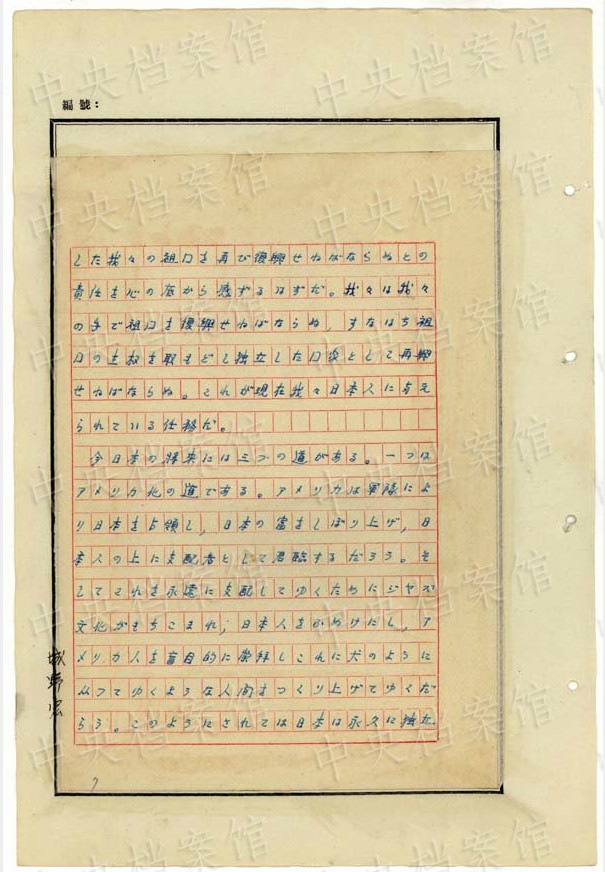 編號：
した我々の祖口を再び復興せねばならぬとの
責任を心の底から感ずるはずだ。我々は我々
の手で祖口を復興せねばならぬ，すなはち祖
口の主权を取もどし独立した口家として再興
せねばならぬ。これが現在我々日本人に与え
られている任務だ。
今日本の将来には三つの道がある。一つは
アメリカ化の道である。アメリカは軍隊によ
り日本を占領し，日本の富をしぼり上げ，日
本人の上に支配者として君臨するだろう。そ
してこれを永遠に支配してゆくためにジャズ
文化がもちこまれ；日本人をふぬけにし，ア
メリカ人を盲目的に崇拜しこれに犬のように
从つてゆくような人间をつくり上げてゆくだ
らう。このようにされては日本は永久に独立
城野宏
7
中央档案馆